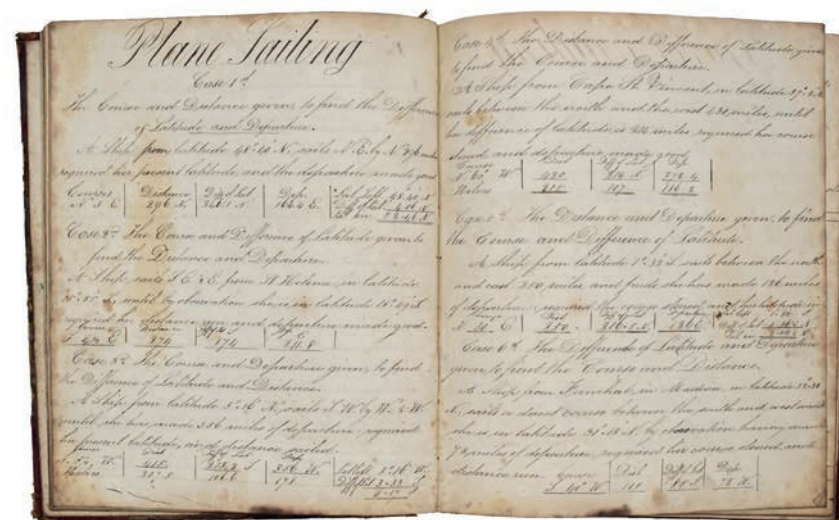 Plane Sailing
Case 1st
The Course and Distance given, to find the Difference
of Latitude and Departure.
A Ship from latitude 48° 40' N, sails N.E. by N 296 miles
required her present latitude, and the departure made good
Courses Distance Diff of Lat Dep.
N 3 E 296 N. 246.1 N. 164.4 E.
Case 2d The Course and Difference of Latitude given, to
find the Distance and Departure.
A Ship sails S.E. E. from St Helena, in latitude
until by observation she is in latitude
required her distance run and departure made good.
Distance
274 174 211.8
Case 3d The Course and Departure given, to find
the Difference of Latitude and Distance.
A Ship from latitude 3° 16' N, sails S.W. by W. W.
until she has made 356 miles of departure, required
her present latitude, and distance sailed.
Dist
356 W. Lat left 3° 16' N.
178
Case 4th The Distance and Difference of Latitude given
to find the Course and Departure.
A Ship from Cape St. Vincent, in latitude 37°
sails between the north and the west 430 miles, until
her difference of latitude is 214 miles, required her course
steered and departure made good
Course Dist Diff of Lat Dep.
N. 60° W 430 214 N 372.4
215 107 186.2
Case 5th The Distance and Departure given, to find
the Course and Difference of Latitude.
A Ship from latitude 1° S. sails between the north
and east 250 miles and finds she has made 136 miles
of departure, required the course steered and latitude in
Dist Diff of Lat Departure
N. E. 250
Case 6th The Difference of Latitude and Departure
given to find the Course and Distance.
A Ship from Funchal, in Madeira, in latitude 32° 38'
N, sails a direct course between the south and west until
she is in latitude 31° 13' N. by observation having made
78 miles of departure, required her course steered and
distance run. Course Dist Diff of Lat Dep
S W 78 W.